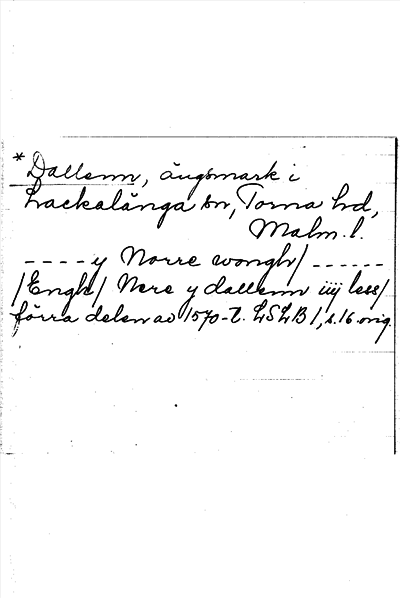 *Dallenn, ängsmark i
Lackalänga sn, Torna hd,
Malm. l.
- - - - y Norre wongh/ - - - - - -
/Engh/ Nere y dallenn iiij less/
förra delen av 1570-t. LSLB 1, s. 16 orig.